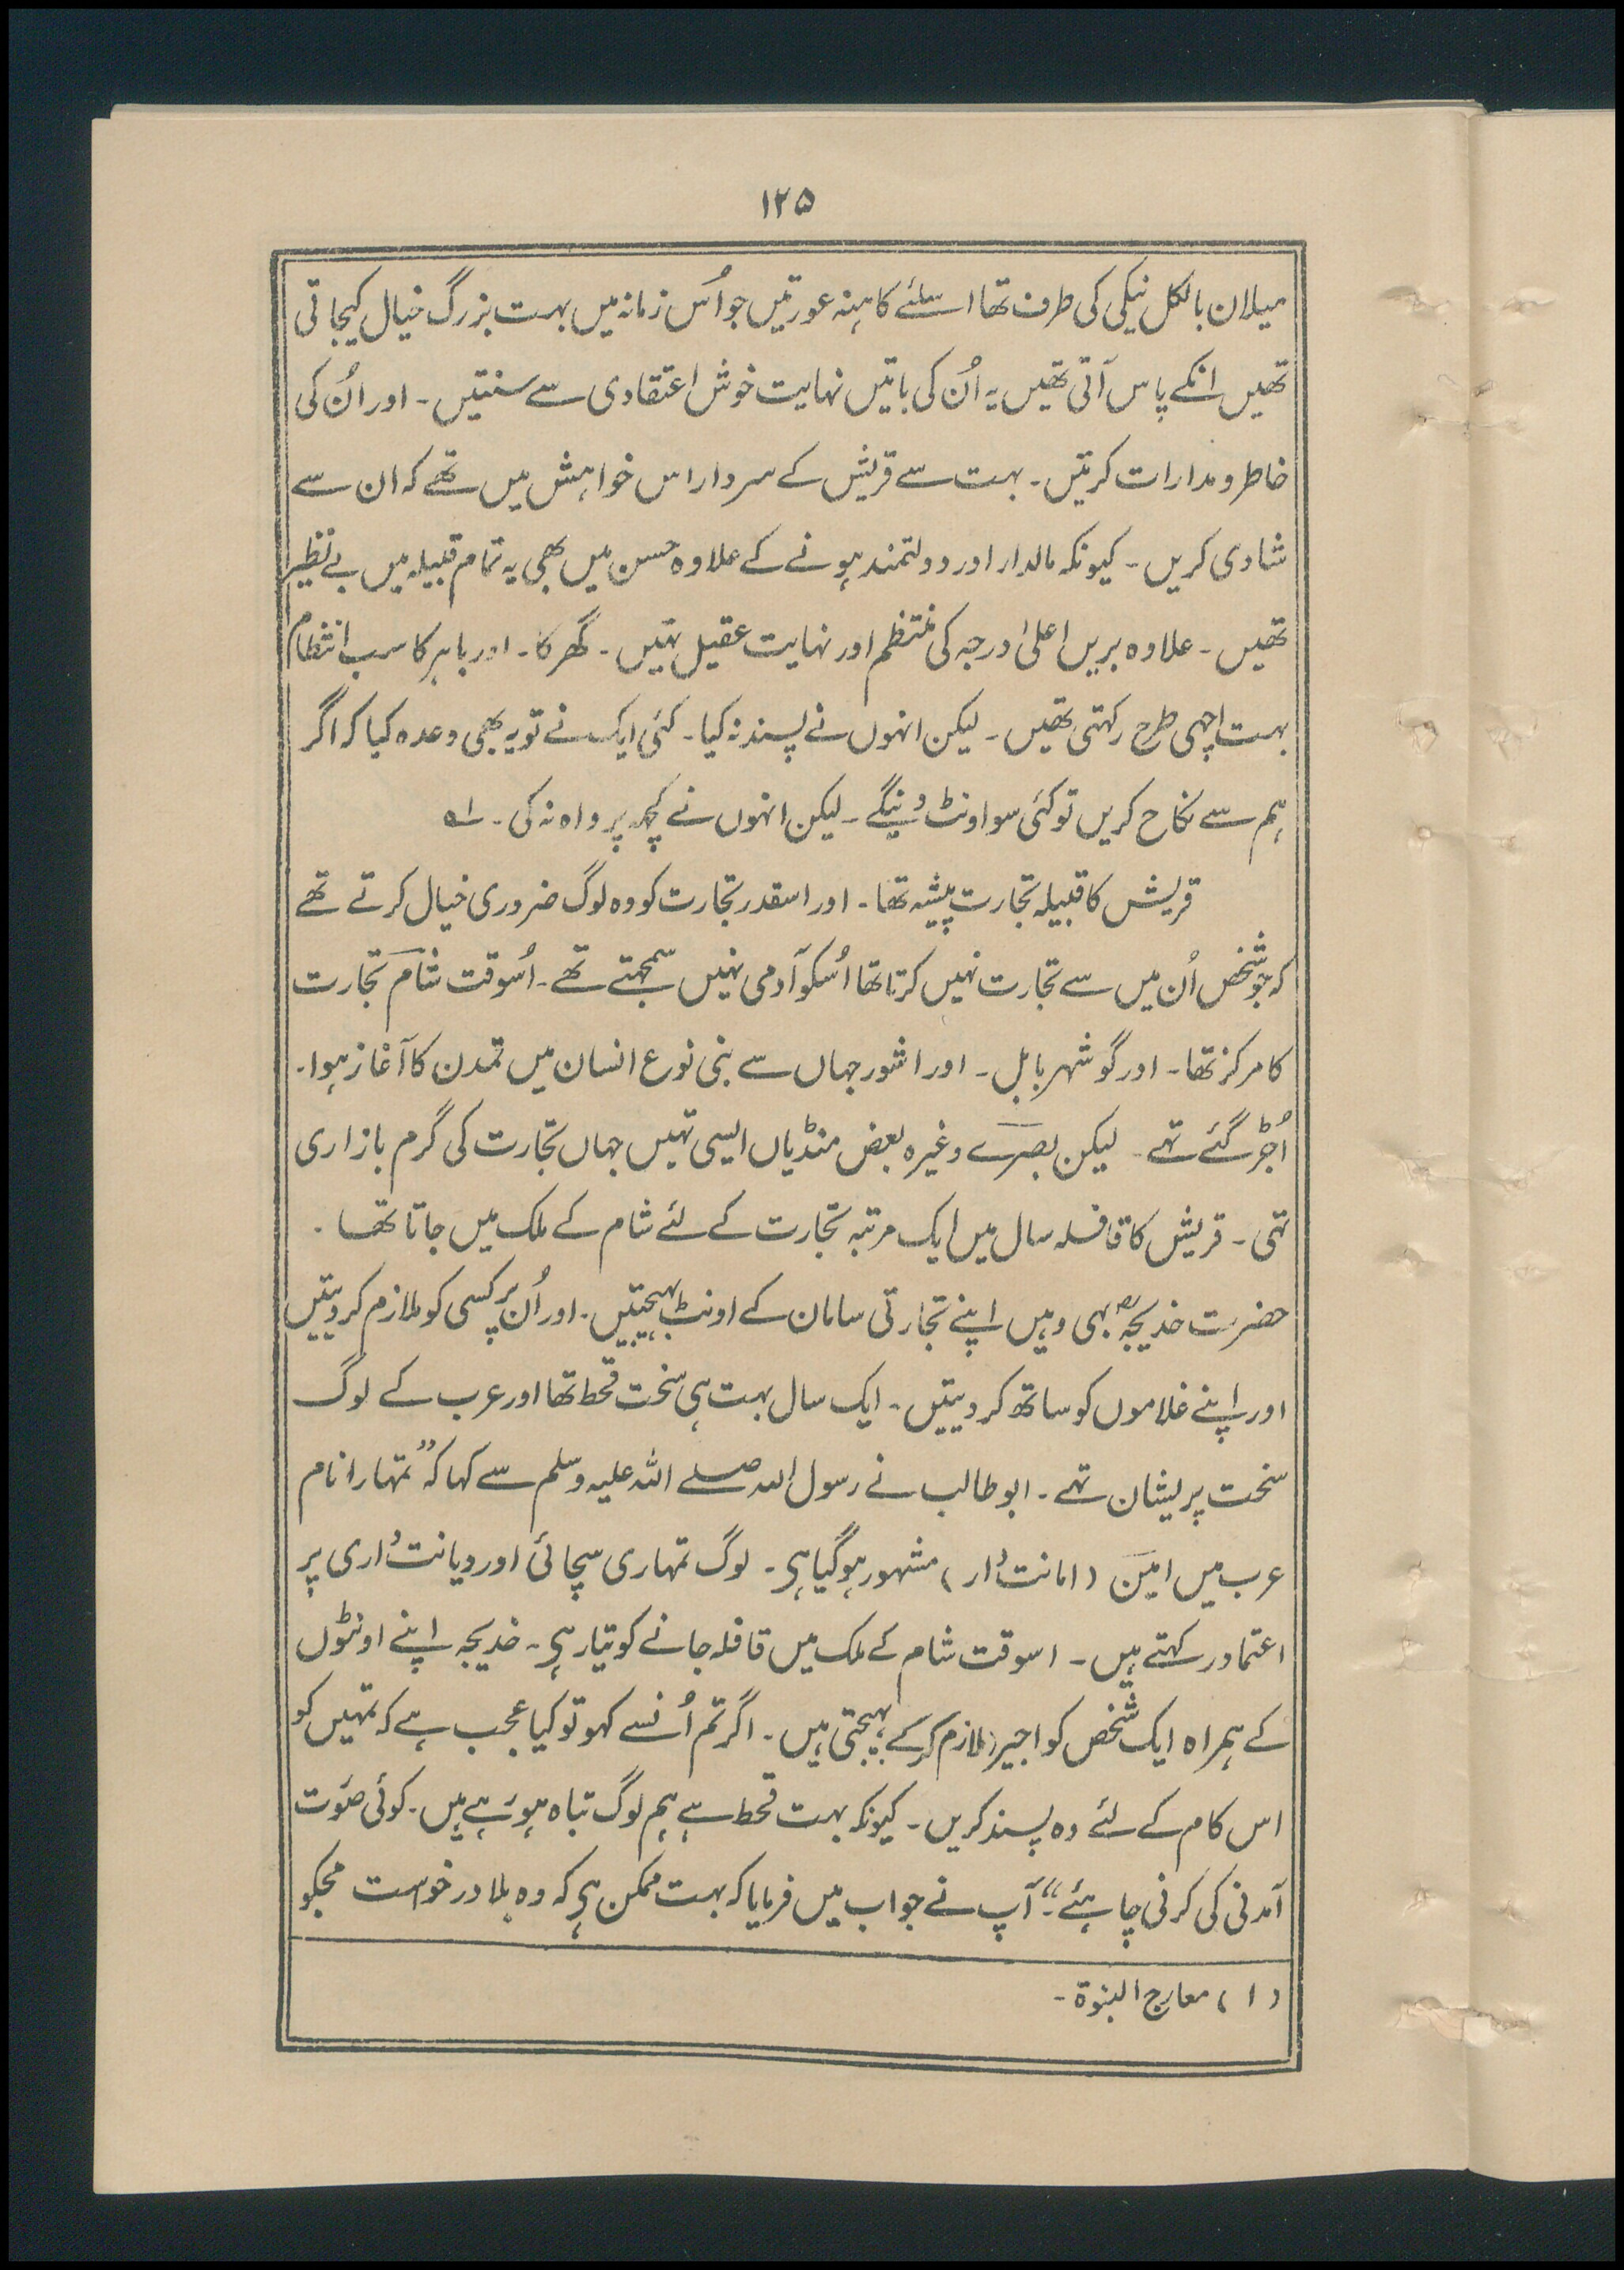 ۱۲۵
میلان بالکل نیکی کی طرف تھا اسلئے کاہنہ عورتیں جو اُس زمانہ میں بہت بزرگ خیال کیجاتی
تھیں انکے پاس آتی تھیں یہ اُن کی باتیں نہایت خوش اعتقادی سے سنتیں۔ اور اُن کی
خاطر و مدارات کرتیں۔ بہت سے قریش کے سردار اس خواہش میں تھے کہ ان سے
شادی کریں۔ کیونکہ مالدار اور دولتمند ہونے کے علاوہ حسن میں بھی یہ تمام قبیلہ میں بے نظیر
تھیں۔ علاوہ بریں اعلیٰ درجہ کی منتظم اور نہایت عقیل تہیں۔ گھر کا۔ اور باہر کا سب انتظام
بہت اچہی طرح رکہتی تھیں۔ لیکن انہوں نے پسند نہ کیا۔ کئی ایک نے تو یہ بھی وعدہ کیا کہ اگر
ہم سے نکاح کریں تو کئی سو اونٹ دُینگے۔ لیکن انہوں نے کچہہ پرواہ نہ کی۔ ۱؎
قریش کا قبیلہ تجارت پیشہ تھا۔ اور اسقدر تجارت کو وہ لوگ ضروری خیال کرتے تھے
کہ جو شخص اُن میں سے تجارت نہیں کرتا تھا اُسکو آدمی نہیں سمجہتے تھے۔ اُسوقت شام تجارت
کا مرکز تھا۔ اور گو شہر بابل۔ اور اشور جہاں سے بنی نوع انسان میں تمدن کا آغاز ہوا۔
اُجڑ گئے تہے۔ لیکن بصرے وغیرہ بعض منڈیاں ایسی تہیں جہاں تجارت کی گرم بازاری
تہی۔ قریش کا قافلہ سال میں ایک مرتبہ تجارت کے لئے شام کے ملک میں جاتا تھا۔
حضرت خدیجہؓ بہی وہیں اپنے تجارتی سامان کے اونٹ بہیجتیں۔ اور اُن پر کسی کو ملازم کر دیتیں
اور اپنے غلاموں کو ساتھ کر دیتیں۔ ایک سال بہت ہی سخت قحط تھا اور عرب کے لوگ
سخت پریشان تہے۔ ابوطالب نے رسول اللہ صلے اللہ علیہ وسلم سے کہا کہ ”تمہارا نام
عرب میں امین (امانتدار) مشہور ہو گیا ہی۔ لوگ تمہاری سچائی اور دیانتداری پر
اعتماد رکہتے ہیں۔ اسوقت شام کے ملک میں قافلہ جانے کو تیار ہی۔ خدیجہ اپنے اونٹوں
کے ہمراہ ایک شخص کو اجیر (ملازم) کر کے بہیجتی ہیں۔ اگر تم اُنسے کہو تو کیا عجب ہے کہ تمہیں کو
اس کام کے لئے وہ پسند کریں۔ کیونکہ بہت قحط ہے ہم لوگ تباہ ہو رہے ہیں۔ کوئی صورت
آمدنی کی کرنی چاہئے“۔ آپ نے جواب میں فرمایا کہ بہت ممکن ہی کہ وہ بلا درخواست مجکو
(۱) معارج النبوۃ۔